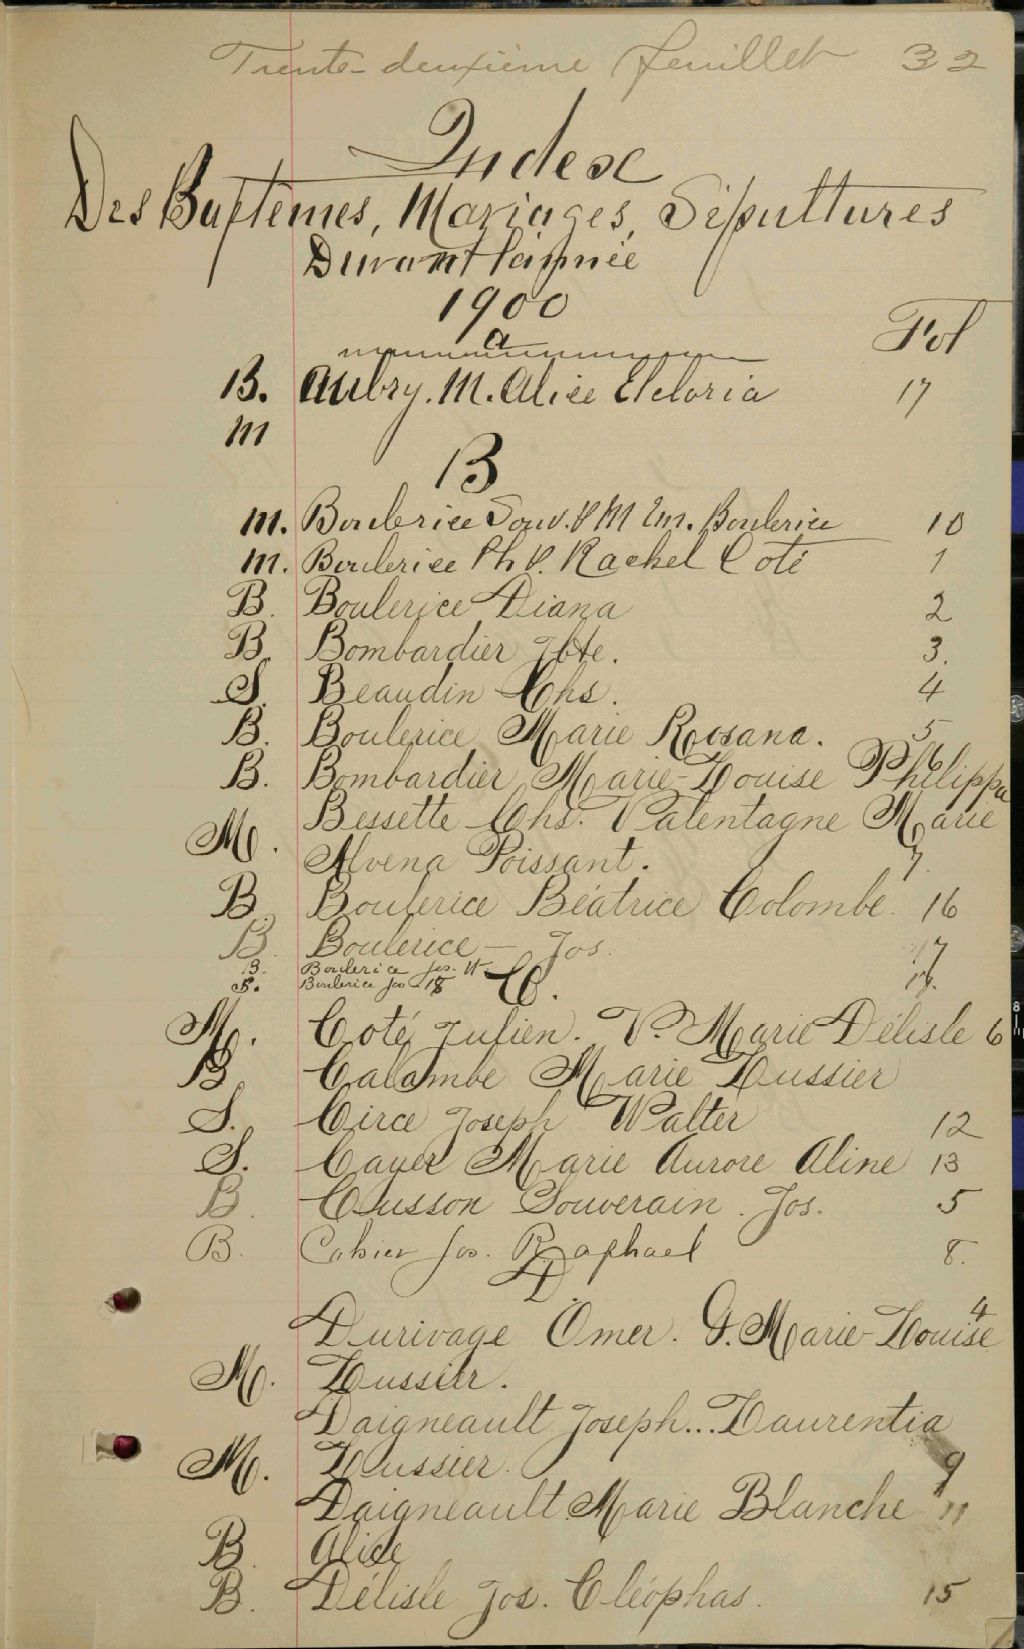 Trente-deuxième feuillet 32
Index
Des Baptêmes, Mariages, Sépultures
Durant l'année
1900
Fol
a
B. Aubry. M. Alice Elcloria 17
M
B
M. Boulerice Souv. V M Em. Boulerice 10
M. Boulerice Ph V. Rachel Coté 1
B. Boulerice Diana 2
B. Bombardier Jbte. 3.
S. Beaudin Chs. 4
B. Boulerice Marie Rosana. 5
B. Bombardier Marie-Louise Philippa 6
Bessette Chs. Valentagne Marie
M. Alvena Poissant. 7.
B. Boulerice Béatrice Colombe. 16
B. Boulerice — Jos. 17
B. Boulerice Jos. 17
S. Boulerice Jos 18
C.
M. Coté Julien. V. Marie Délisle 6
B. Calambe Marie Lussier
S. Circe Joseph Walter 12
S. Cayer Marie Aurore Aline 13
B. Cusson Souverain. Jos. 5
B. Cahier Jos. Raphael 8.
D.
Durivage Omer. G. Marie-Louise 4
M. Lussier.
Daigneault Joseph... Laurentia
M. Lussier. 9
Daigneault Marie Blanche 11
B. Alice
B. Délisle Jos. Cléophas. 15